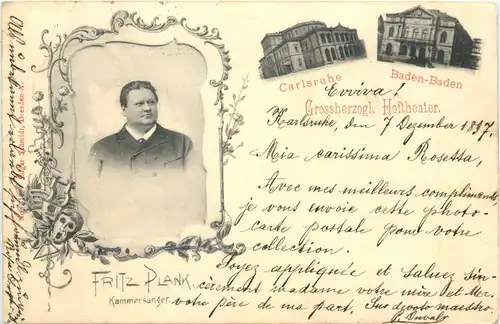 Carlsruhe
Baden-Baden
Evviva!
Grossherzogl. Hoftheater.
Karlsruhe, den 7 Dezember 1897
Mia carissima Rosetta,
Avec mes meilleurs compliments,
je vous envoie cette photo-
carte postale pour votre
collection.
Soyez appliquée et saluez sin-
cèrement madame votre mère et Mr.
votre père de ma part. Suo devoto maestro
FRITZ PLANK
Kammersänger